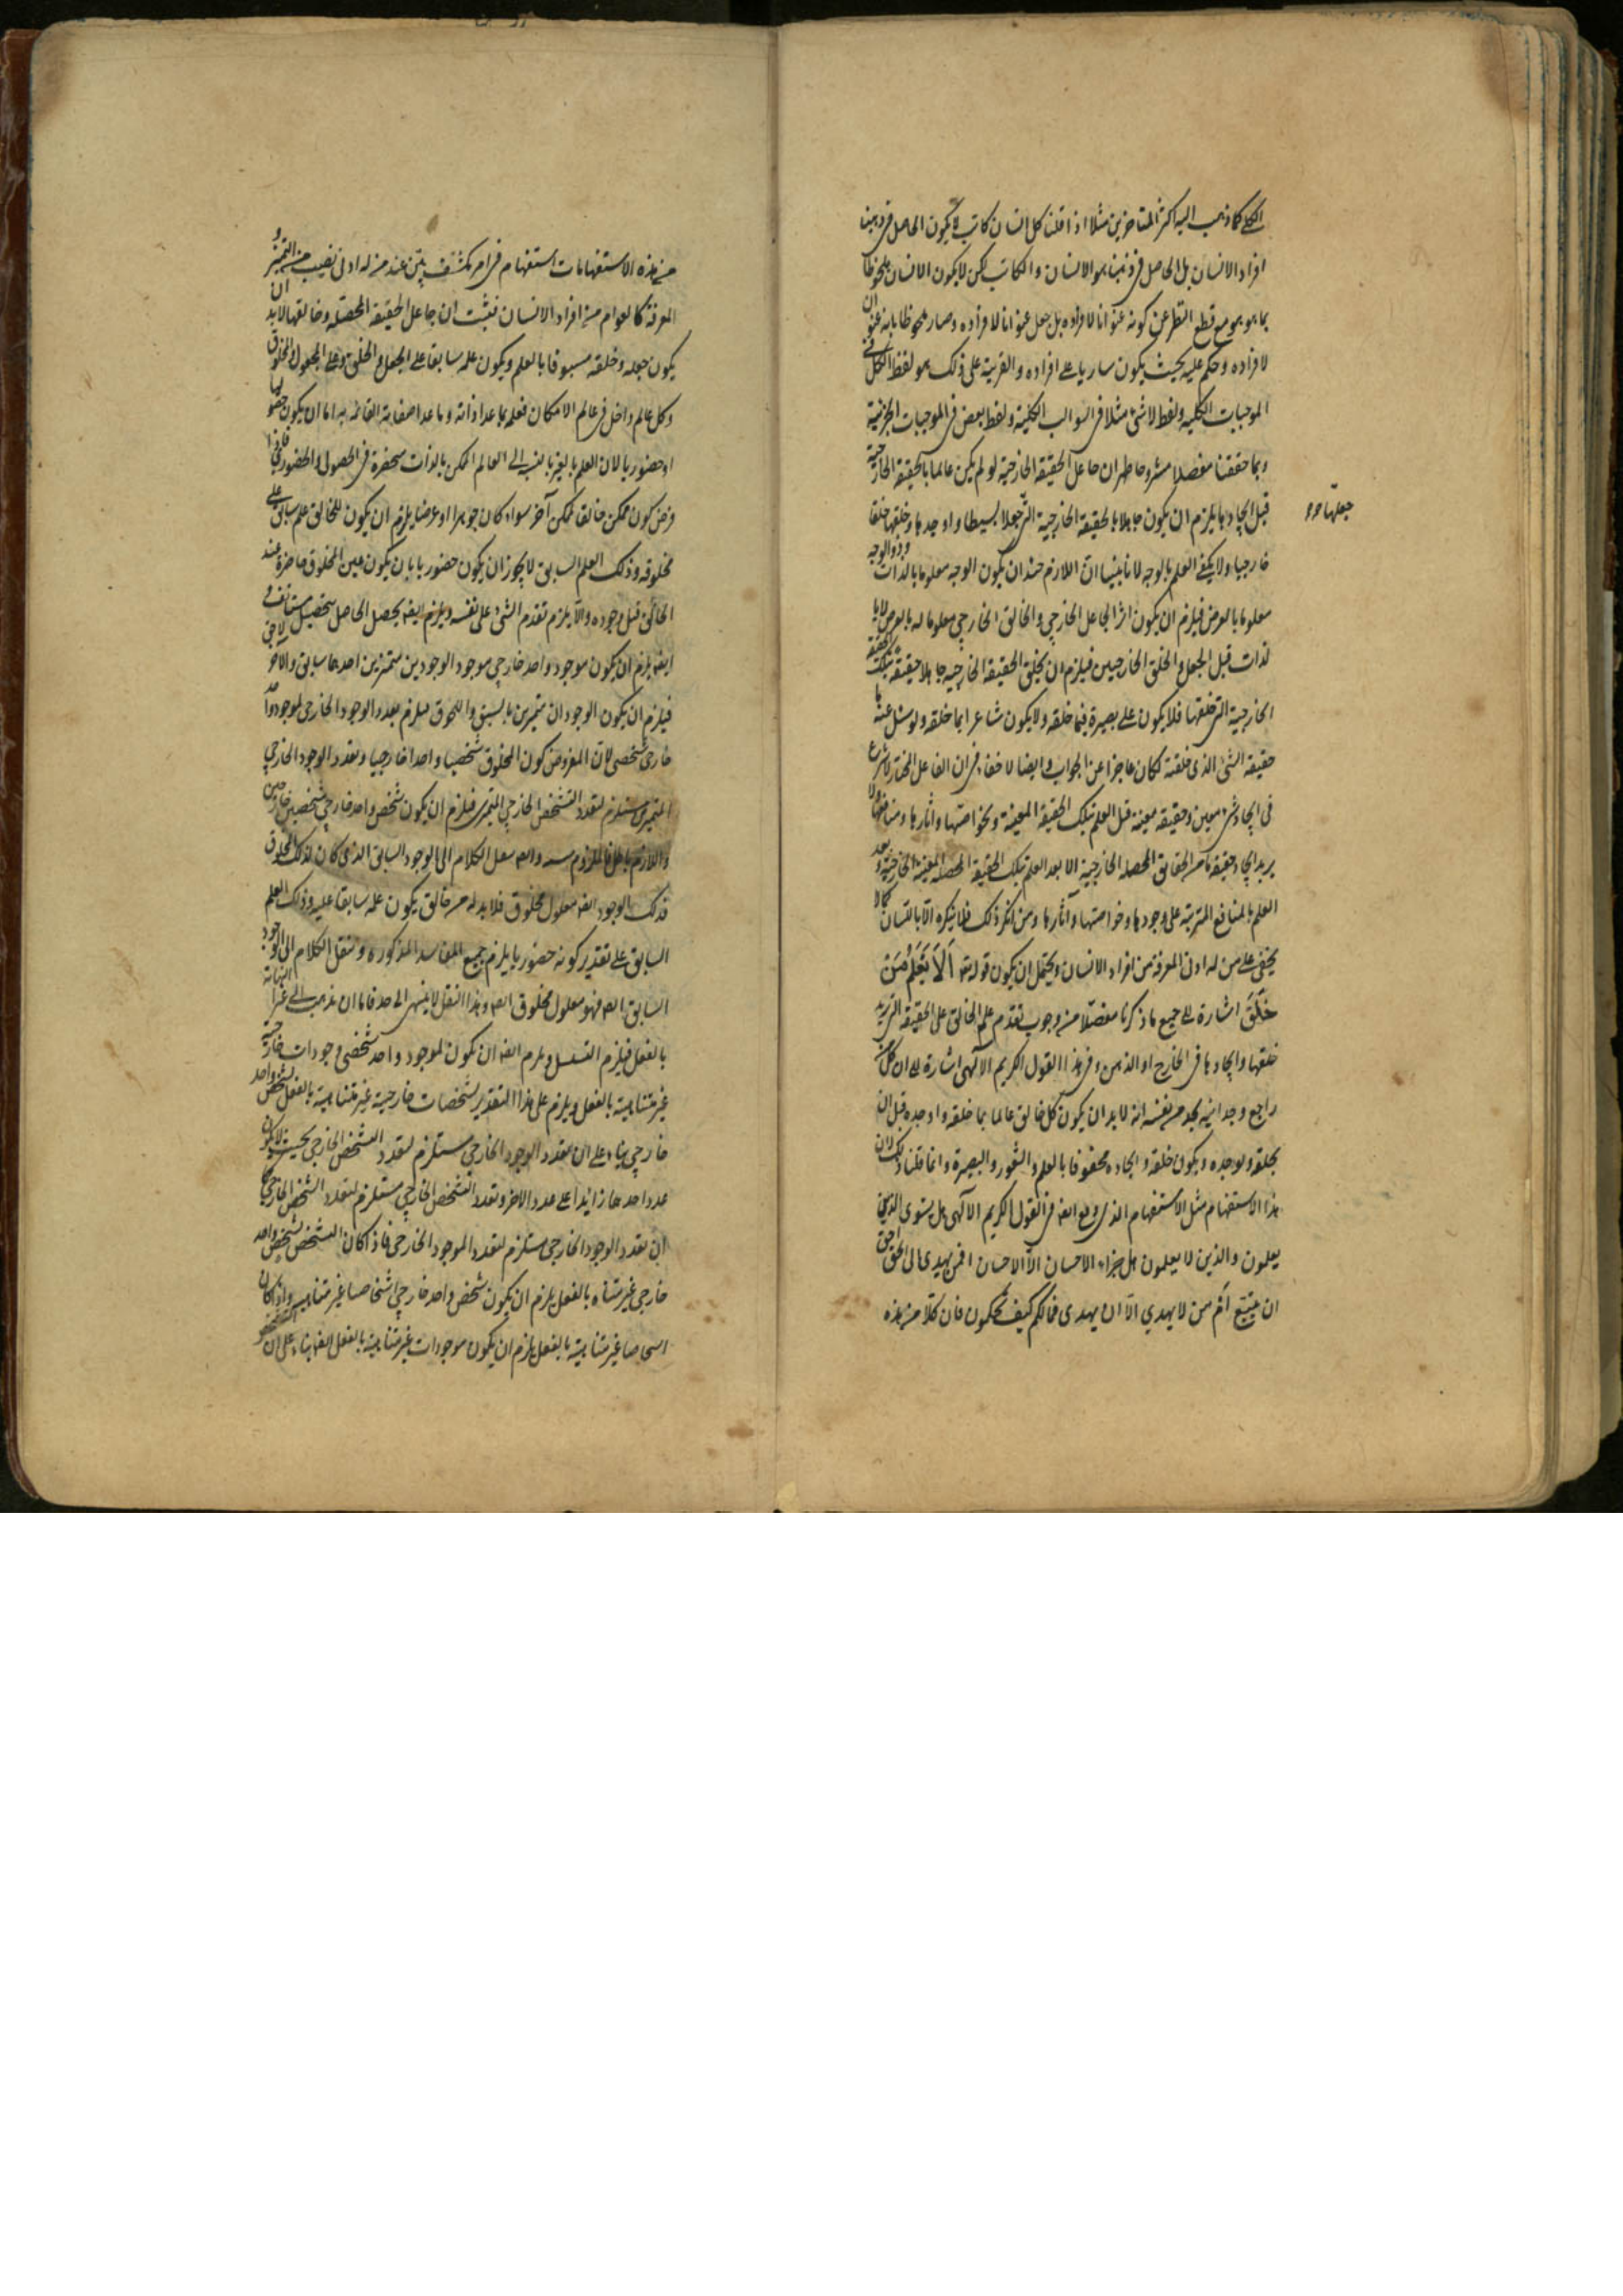 الكلي كما ذهب اليه اكثر المتاخرين مثلا اذا قلنا كل انسان كاتب لا يكون الحاصل في ذهننا
افراد الانسان بل الحاصل في ذهننا هو الانسان والكاتب لكن لا يكون الانسان ملحوظا
بما هو هو مع قطع النظر عن كونه عنوانا لافراده بل جعل عنوانا لافراده وصار ملحوظا بانه عنوان
لافراده وحكم عليه بحيث يكون ساريا على افراده والقرينة على ذلك هو لفظ الكل في
الموجبات الكلية ولفظ لا شئ مثلا في السوالب الكلية ولفظ بعض في الموجبات الجزئية
وبما حققنا مفصلا مشروحا ظهر ان جاعل الحقيقة الخارجية لو لم يكن عالما بالحقيقة الخارجية
قبل ايجادها يلزم ان يكون جاهلا بالحقيقة الخارجية التي جعلا بسيطا واوجدها وخلقها خلقا
جعلها
خارجيا ولا يكفي العلم بالوجه لانا بينا ان اللازم حينئذ ان يكون الوجه معلوما بالذات وذو الوجه
معلوما بالعرض فيلزم ان يكون اثر الجاعل الخارجي والخالق الخارجي معلوما له بالعرض لا با
لذات قبل الجعل والخلق الخارجيين فيلزم ان يخلق الحقيقة الخارجية جاهلا حقيقة تلك الحقيقة
الخارجية التي خلقها فلا يكون على بصيرة فيما خلقه ولا يكون شاعرا بما خلقه ولو سئل عنه ما
حقيقة الشئ الذي خلقته لكان عاجزا عن الجواب وايضا لا خفاء في ان الفاعل المختار لا يشرع
في ايجاد شئ معين وحقيقة معينة قبل العلم بتلك الحقيقة المعينة وبخواصها واثارها ومنافعها ولا
يريد ايجاد حقيقة ما من الحقايق المحصلة الخارجية الا بعد العلم بتلك الحقيقة المحصلة المعينة الخارجية وبعد
العلم بالمنافع المترتبة على وجودها وخواصها وآثارها ومن انكر ذلك فلا ينكره الا باللسان كما لا
يخفى على من له ادنى المعرفة من افراد الانسان ويحتمل ان يكون قوله تع اَلَا يَعْلَمُ مَنْ
خَلَقَ اشارة الى جميع ما ذكرنا مفصّلا من وجوب تقدم علم الخالق على الحقيقة التي يريد
خلقها وايجادها في الخارج او الذهن وفي هذا القول الكريم الالهي اشارة الى ان كل من
راجع وجدانيه يجد من نفسه انه لا بد ان يكون كل خالق عالما بما خلقه واوجده قبل ان
يخلقه ويوجده ويكون خلقه وايجاده محفوفا بالعلم والشعور والبصيرة وانما قلنا ذلك لان
هذا الاستفهام مثل الاستفهام الذي وقع ايضا في القول الكريم الالهي هل يستوي الذين
يعلمون والذين لا يعلمون هل جزاء الاحسان الا الاحسان افمن يهدي الى الحق احق
ان يتبع اَم من لا يهدي الا ان يهدى فما لكم كيف تحكمون فان كلا من هذه
من هذه الاستفهامات استفهام في امر منكشف بيّن عند من له ادنى نصيب من التميز و
المعرفة كالعوام من افراد الانسان فثبت ان جاعل الحقيقة المحصلة وخالقها لا بد ان
يكون جعله وخلقه مسبوقا بالعلم ويكون علمه سابقا على الجعل والخلق وعلى المجعول والمخلوق
وكل عالم داخل في عالم الامكان فعلمه بما عدا ذاته وما عدا صفاته القائمة به اما ان يكون حصوليا
او حضوريا لان العلم بالغير بالنسبة الى العالم الممكن بالذات منحصرة في الحصول والحضوري فاذا
فرض كون ممكن خالقا لممكن آخر سواء كان جوهرا او عرضا يلزم ان يكون للخالق علم سابق على
مخلوقه وذلك العلم السابق لا يجوز ان يكون حضوريا بان يكون عين المخلوق حاضرة عند
الخالق قبل وجوده والا يلزم تقدم الشئ على نفسه ويلزم ايضا تحصيل الحاصل بتحصيل مستانف و
ايضا يلزم ان يكون موجود واحد خارجي موجودا بوجودين متميزين احدهما سابق والاخر لاحق
فيلزم ان يكون الوجودان متميزين بالسبق واللحوق فيلزم تعدد الوجود الخارجي لموجود واحد
خارجي شخصي لان المفروض كون المخلوق شخصيا واحدا خارجيا وتعدد الوجود الخارجي
المتميزين مستلزم لتعدد التشخص الخارجي المتميز فيلزم ان يكون شخص واحد خارجي شخصين خارجيين
واللازم باطل فالملزوم مثله وايضا ننقل الكلام الى الوجود السابق الذي كان لذلك المخلوق
فذلك الوجود ايضا معلول مخلوق فلا بد له من خالق يكون علمه سابقا عليه وذلك العلم
السابق على تقدير كونه حضوريا يلزم جميع المفاسد المذكورة وننقل الكلام الى الوجود
السابق ايضا فهو معلول مخلوق ايضا وهذا النقل لا ينتهي الى حد فاما ان يذهب الى غير النهاية
بالفعل فيلزم التسلسل ويلزم ايضا ان تكون لموجود واحد شخصي وجودات خارجية
غير متناهية بالفعل ويلزم على هذا التقدير تشخصات خارجية غير متناهية بالفعل لشخص واحد
خارجي بناء على ان تعدد الوجود الخارجي مستلزم لتعدد التشخص الخارجي بحيث لا يكون
عدد احدهما زايدا على عدد الاخر وتعدد التشخص الخارجي مستلزم لتعدد الشخص الخارجي كما
ان تعدد الوجود الخارجي مستلزم لتعدد الموجود الخارجي فاذا كان التشخص لشخص واحد
خارجي غير متناه بالفعل يلزم ان يكون شخص واحد خارجي اشخاصا غير متناهية واذا كان
اشخاصا غير متناهية بالفعل يلزم ان يكون موجودات غير متناهية بالفعل ايضا بناء على ان